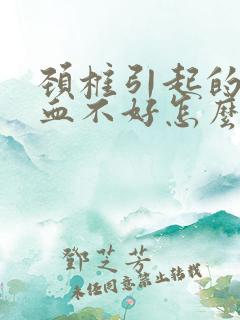 頚椎引起的
血不好怎麼
鄧芝芳
未经同意禁止转载